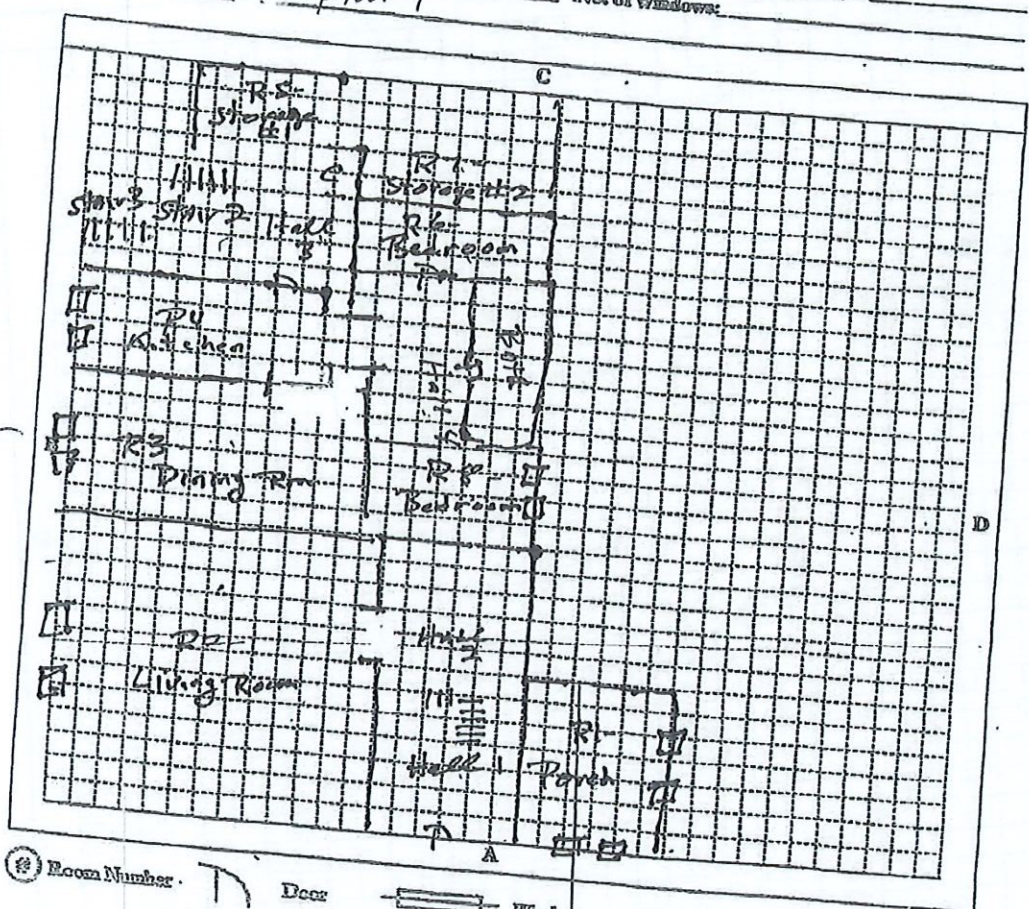 No. of Windows:
C
R5-
Storage
#1
R7-
Storage #2
C
Stair 3 Stair 2 Hall
3
R6-
Bedroom
D
D
R4
Kitchen
Hall
Bath
R3
Dining Rm
R8-
Bedroom
D
Hall
2
R2
Living Room
R1-
Hall 1
Porch
D
A
# Room Number.
Door